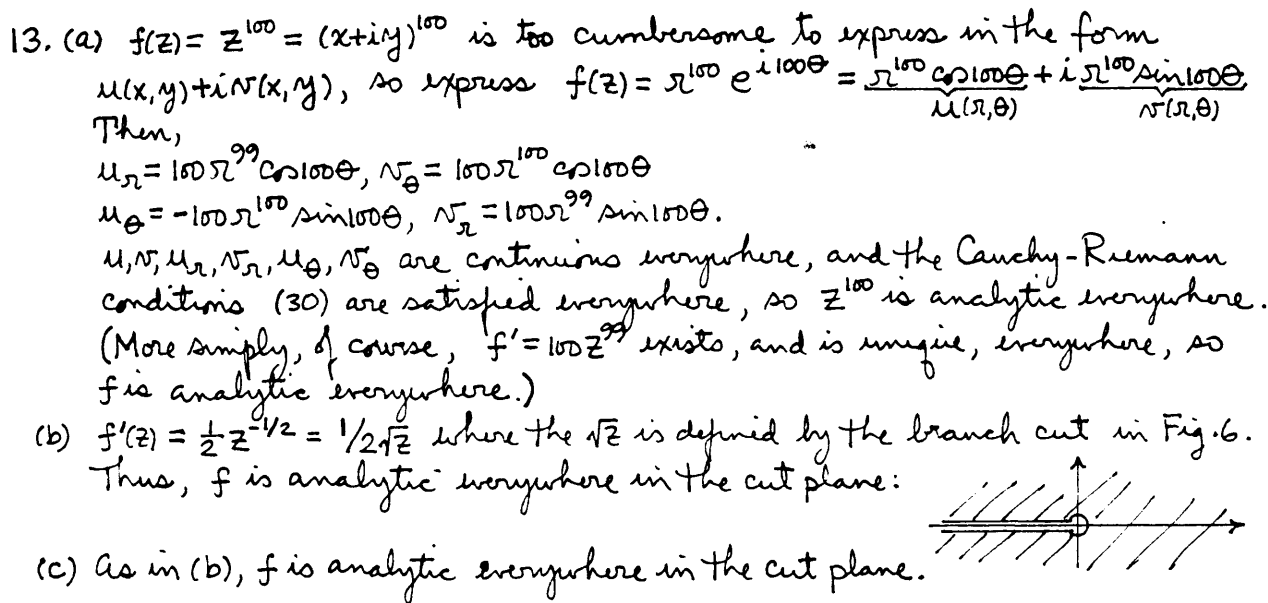 13. (a) f(z) = z^100 = (x+iy)^100 is too cumbersome to express in the form
u(x,y)+iv(x,y), so express f(z) = r^100 e^i100θ = r^100 cos100θ + i r^100 sin100θ.
u(r,θ) v(r,θ)
Then,
u_r = 100r^99 cos100θ, v_θ = 100r^100 cos100θ
u_θ = -100r^100 sin100θ, v_r = 100r^99 sin100θ.
u, v, u_r, v_r, u_θ, v_θ are continuous everywhere, and the Cauchy-Riemann
conditions (30) are satisfied everywhere, so z^100 is analytic everywhere.
(More simply, of course, f' = 100z^99 exists, and is unique, everywhere, so
f is analytic everywhere.)
(b) f'(z) = 1/2 z^-1/2 = 1/2√z where the √z is defined by the branch cut in Fig. 6.
Thus, f is analytic everywhere in the cut plane:
(c) As in (b), f is analytic everywhere in the cut plane.